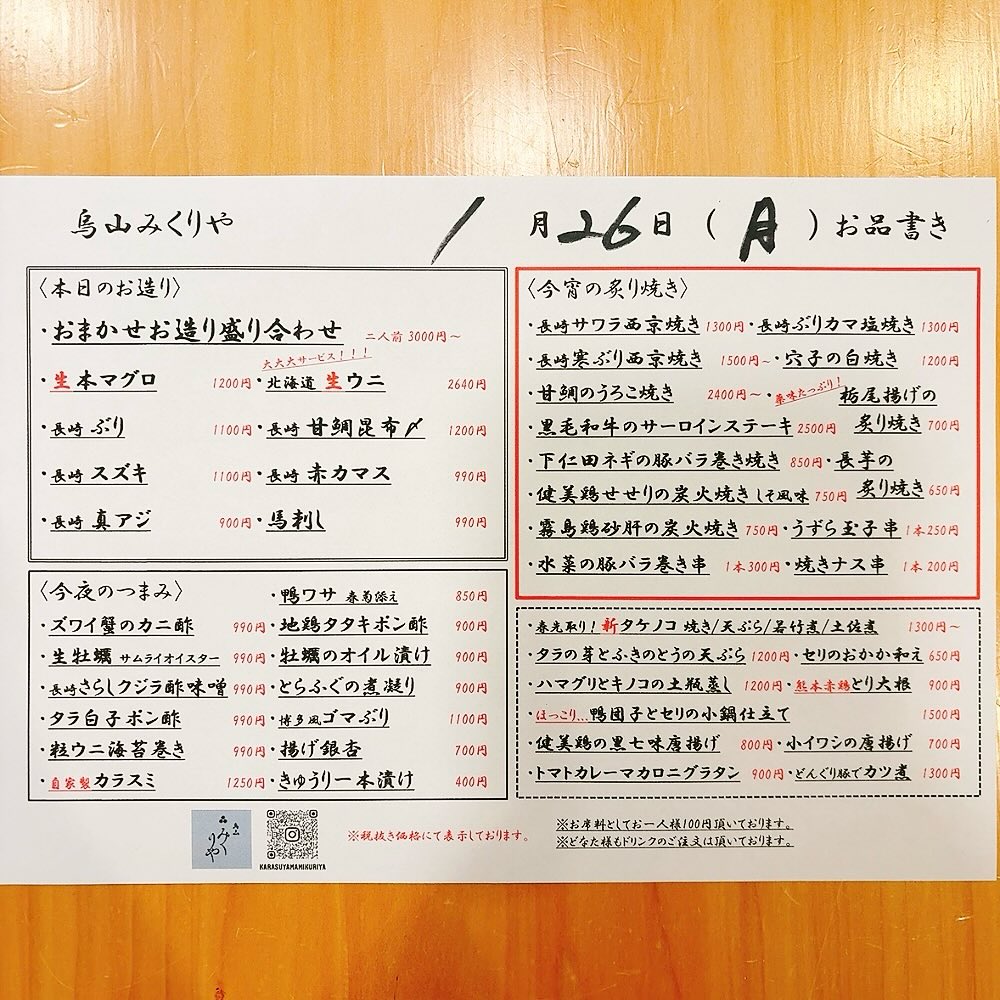 烏山みくりや 1月26日(月)お品書き
〈本日のお造り〉
・おまかせお造り盛り合わせ 二人前 3000円~
大大大サービス!!!
・生本マグロ 1200円・北海道 生ウニ 2640円
・長崎 ぶり 1100円・長崎 甘鯛昆布〆 1200円
・長崎 スズキ 1100円・長崎 赤カマス 990円
・長崎 真アジ 900円・馬刺し 990円
〈今夜のつまみ〉 ・鴨ワサ 春菊添え 850円
・ズワイ蟹のカニ酢 990円・地鶏タタキポン酢 900円
・生牡蠣 サムライオイスター 990円・牡蠣のオイル漬け 900円
・長崎さらしクジラ酢味噌 990円・とらふぐの煮凝り 900円
・タラ白子ポン酢 990円・博多風ゴマぶり 1100円
・粒ウニ海苔巻き 990円・揚げ銀杏 700円
・自家製カラスミ 1250円・きゅうり一本漬け 400円
〈今宵の炙り焼き〉
・長崎サワラ西京焼き 1300円・長崎ぶりカマ塩焼き 1300円
・長崎寒ぶり西京焼き 1500円~・穴子の白焼き 1200円
・甘鯛のうろこ焼き 2400円~・薬味たっぷり!栃尾揚げの
・黒毛和牛のサーロインステーキ 2500円 炙り焼き 700円
・下仁田ネギの豚バラ巻き焼き 850円・長芋の
・健美鶏せせりの炭火焼き しそ風味 750円 炙り焼き 650円
・霧島鶏砂肝の炭火焼き 750円・うずら玉子串 1本250円
・水菜の豚バラ巻き串 1本300円・焼きナス串 1本200円
・春先取り!新タケノコ 焼き/天ぷら/若竹煮/土佐煮 1300円~
・タラの芽とふきのとうの天ぷら 1200円・セリのおかか和え 650円
・ハマグリとキノコの土瓶蒸し 1200円・熊本赤鶏とり大根 900円
・ほっこり...鴨団子とセリの小鍋仕立て 1500円
・健美鶏の黒七味唐揚げ 800円・小イワシの唐揚げ 700円
・トマトカレーマカロニグラタン 900円・どんぐり豚でカツ煮 1300円
みくりや
KARASUYAMAMIKURIYA
※税抜き価格にて表示しております。
※お席料としてお一人様100円頂いております。
※どなた様もドリンクのご注文は頂いております。